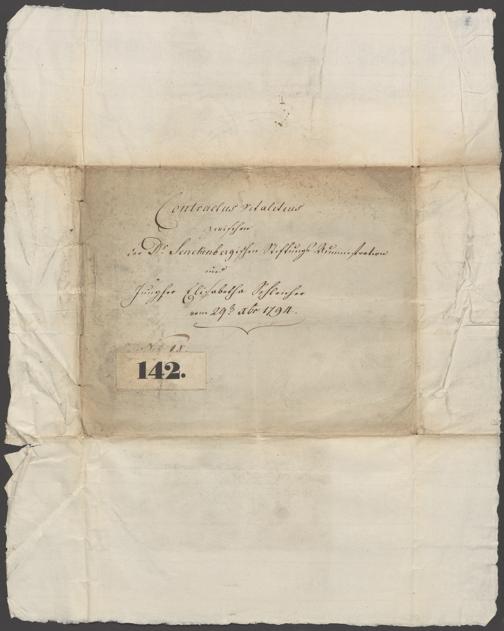 Contractus vitalitius
zwischen
der Dr. Senckenbergischen Stiftungs Administration
und
Jungfer Elisabetha Schleicher
vom 29t. Xbr 1794.
18.
142.